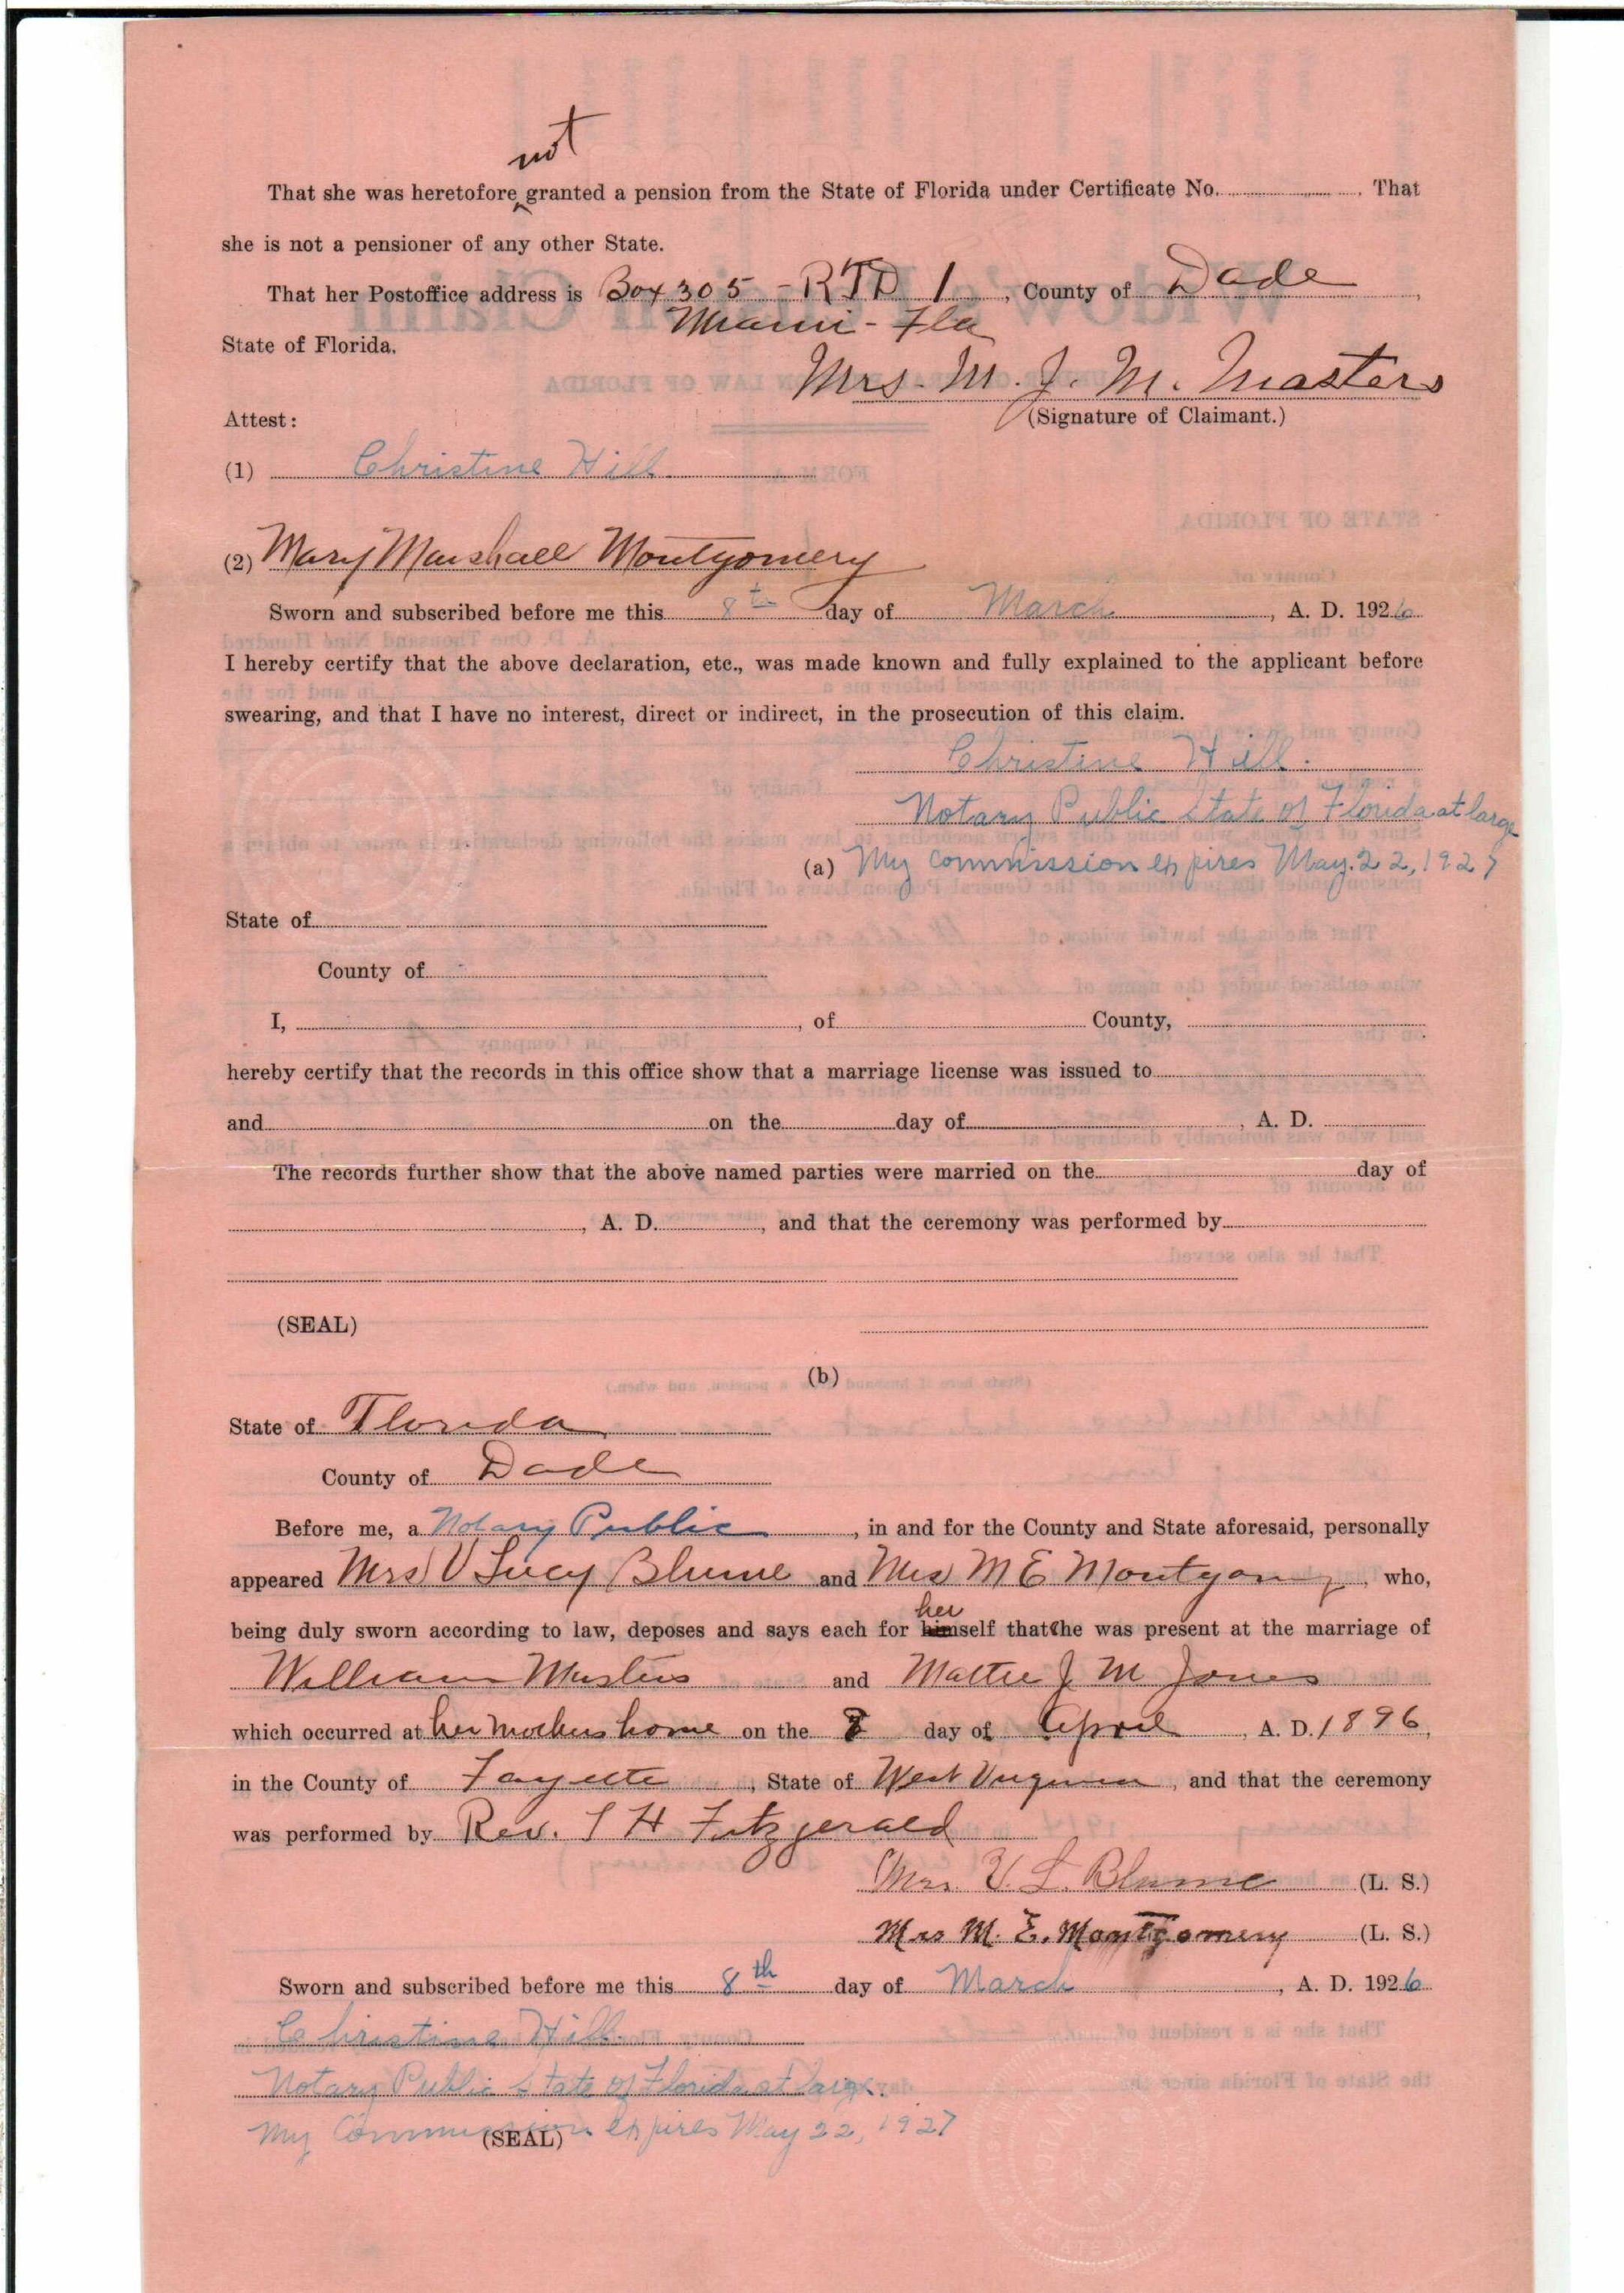 not
That she was heretofore granted a pension from the State of Florida under Certificate No. That
she is not a pensioner of any other State.
That her Postoffice address is Box 305 - RFD 1, County of Dade,
Miami - Fla
State of Florida.
Mrs. M. J. M. Masters
Attest: (Signature of Claimant.)
(1) Christine Hill
(2) Mary Marshall Montgomery
Sworn and subscribed before me this 8th day of March, A. D. 1926
I hereby certify that the above declaration, etc., was made known and fully explained to the applicant before
swearing, and that I have no interest, direct or indirect, in the prosecution of this claim.
Christine Hill.
Notary Public State of Florida at large
(a) My Commission expires May. 22, 1927
State of
County of
I, , of County,
hereby certify that the records in this office show that a marriage license was issued to
and on the day of , A. D.
The records further show that the above named parties were married on the day of
, A. D. , and that the ceremony was performed by
(SEAL)
(b)
State of Florida
County of Dade
Before me, a Notary Public, in and for the County and State aforesaid, personally
appeared Mrs V Lucy Blume and Mrs M E Montgomery, who,
her
being duly sworn according to law, deposes and says each for himself that he was present at the marriage of
William Masters and Mattie J M Jones
which occurred at her mothers home on the 8 day of April, A. D. 1896,
in the County of Fayette, State of West Virginia, and that the ceremony
was performed by Rev. H Fitzgerald
Mrs. V. L. Blume (L. S.)
Mrs M. E. Montgomery (L. S.)
Sworn and subscribed before me this 8th day of March, A. D. 1926
Christine Hill.
Notary Public State of Florida at large.
My Commission expires May 22, 1927
(SEAL)